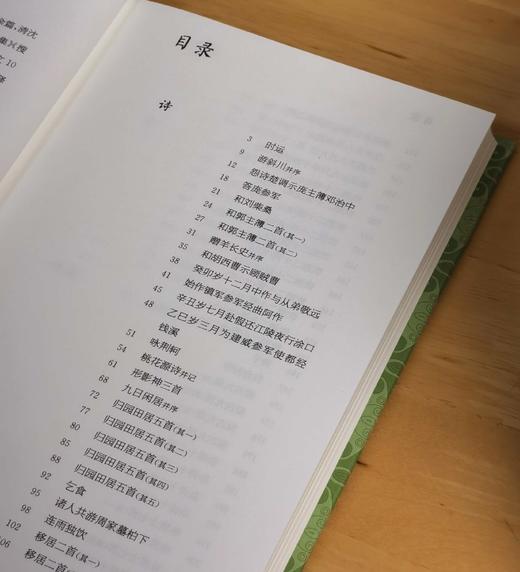 金篇,清沈
文 10
目录
诗
3 时运
9 游斜川并序
12 怨诗楚调示庞主簿邓治中
18 答庞参军
21 和刘柴桑
24 和郭主簿二首(其一)
27 和郭主簿二首(其二)
31 赠羊长史并序
35 和胡西曹示顾贼曹
38 癸卯岁十二月中作与从弟敬远
41 始作镇军参军经曲阿作
45 辛丑岁七月赴假还江陵夜行涂口
48 乙巳岁三月为建威参军使都经
钱溪
51 咏荆轲
54 桃花源诗并记
61 形影神三首
68 九日闲居并序
72 归园田居五首(其一)
77 归园田居五首(其二)
80 归园田居五首(其三)
85 归园田居五首(其四)
88 归园田居五首(其五)
92 乞食
95 诸人共游周家墓柏下
98 连雨独饮
102 移居二首(其一)
106 移居二首